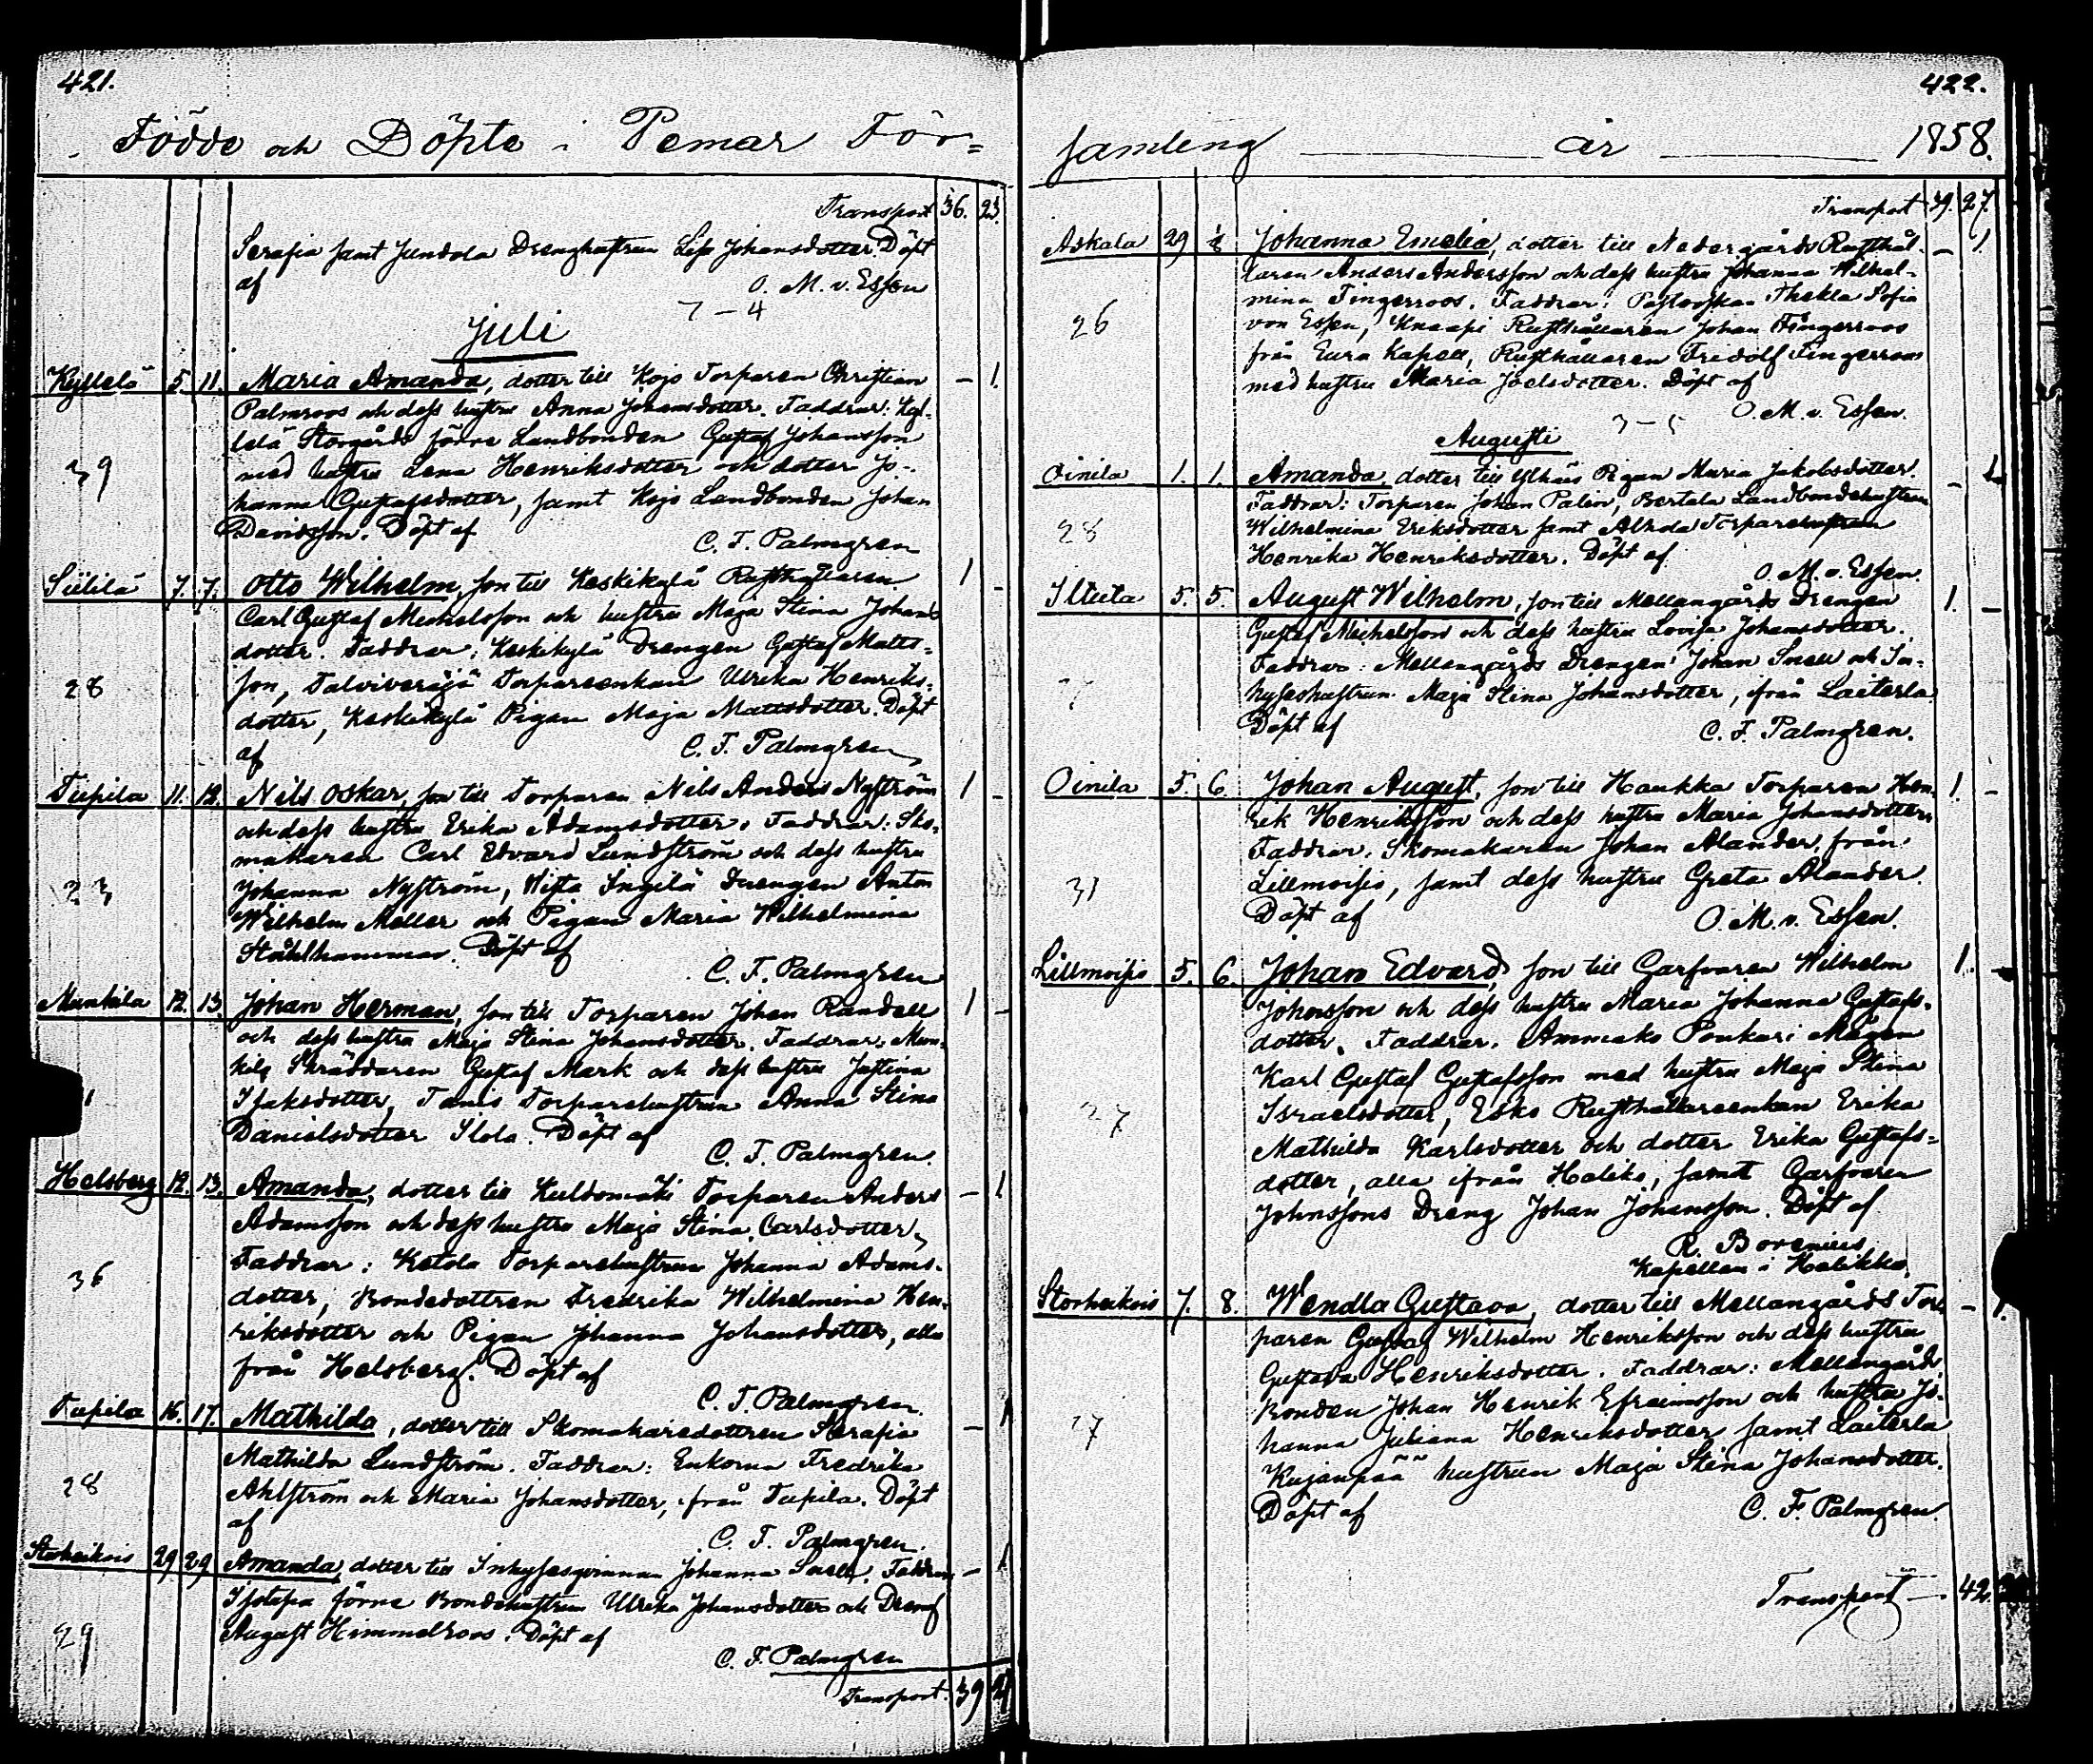 421.
Födde och Döpte i Pemar För=
Transport 36. 23.
Serafia samt Jundola Drenghustrun Lisa Johansdotter. Döpt
af O. M. v. Essen
7 – 4
Juli
Kyllelä 5. 11. Maria Amanda, dotter till Kojo Torparen Christian – 1.
Palmroos och dess hustru Anna Johansdotter. Faddrar: Kyl-
lelä Storgårds förre Landbonden Gustaf Johansson
39 med hustru Lena Henriksdotter och dotter Jo-
hanna Gustafsdotter, samt Kojo Landbonden Johan
Davidsson. Döpt af
C. F. Palmgren
Siililä 7. 7. Otto Wilhelm, son till Keskikylä Rusthållaren 1 –
Carl Gustaf Michelsson och hustru Maja Stina Johans
dotter. Faddrar: Keskikylä Drengen Gustaf Matts=
28 son, Talviveräjä Torpareenkan Ulrika Henriks-
dotter, Keskikylä Pigan Maja Mattsdotter. Döpt
af C. F. Palmgren
Tupila 11. 12. Nils Oskar, son till Torparen Nils Anders Nyström 1 –
och dess hustru Erika Adamsdotter. Faddrar: Sko-
makaren Carl Edvard Lundström och dess hustru
23 Johanna Nyström, Wista Ingilä Drengen Anton
Wilhelm Meller och Pigan Maria Wilhelmina
Ståhlhammar. Döpt af
C. F. Palmgren
Munkila 12. 13. Johan Herman, son till Torparen Johan Randell 1 –
och dess hustru Maja Stina Johansdotter. Faddrar: Mun-
kila Skräddaren Gustaf Mark och dess hustru Justina
Isaksdotter, Tanis Torparehustrun Anna Stina
Danielsdotter Ilola. Döpt af
C. F. Palmgren.
Helsberg 12. 13. Amanda, dotter till Kuldomäki Torparen Anders – 1.
Adamsson och dess hustru Maja Stina Carlsdotter,
36 Faddrar: Ketola Torparehustrun Johanna Adams-
dotter, Bondedottren Fredrika Wilhelmina Hen-
riksdotter och Pigan Johanna Johansdotter, alla
från Helsberg. Döpt af
C. F. Palmgren.
Tupila 16. 17. Mathilda, dotter till Skomakaredottren Serafia – 1
Mathilda Lundström. Faddrar: Enkorna Fredrika
28 Ahlström och Maria Johansdotter, ifrån Tupila. Döpt
af C. F. Palmgren.
Storheikois 29 29 Amanda, dotter till Inhysesqvinnan Johanna Snell. Faddrar – 1
Isotapa förre Bondehustrun Ulrika Johansdotter och Dreng
29 August Himmelroos. Döpt af
C. F. Palmgren
Transport. 39 27
422.
samling år 1858.
Transport 39. 27.
Askala 29 Johanna Emelia, dotter till Nedergårds Rusthål- – 1
laren Anders Andersson och dess hustru Johanna Wilhel-
26 mina Fingerroos. Faddrar: Pastorskan Thekla Sofia
von Essen, Knaapi Rusthållaren Johan Fingerroos
från Eura Kapell, Rusthållaren Fridolf Fingerroos
med hustru Maria Joelsdotter. Döpt af
O. M. v. Essen.
3 – 5
Augusti
Oinila 1. 1. Amanda, dotter till Ylhäis Pigan Maria Jakobsdotter. – 1
Faddrar: Torparen Johan Palin, Bertala Landbondehustrun
28 Wilhelmina Eriksdotter samt Torparehustrun
Henrika Henriksdotter. Döpt af
O. M. v. Essen.
Iltuta 5. 5. August Wilhelm, son till Mellangårds Drengen 1. –
Gustaf Michelsson och dess hustru Lovisa Johansdotter.
Faddrar: Mellangårds Drengen Johan Snell och In-
hyseshustrun Maja Stina Johansdotter, ifrån Laiterla
Döpt af C. F. Palmgren.
Oinila 5. 6. Johan August, son till Haukka Torparen Hen- 1. –
rik Henriksson och dess hustru Maria Johansdotter.
Faddrar: Skomakaren Johan Alander, från
31 Lillmoisio, samt dess hustru Greta Alander.
Döpt af O. M. v. Essen.
Lillmoisio 5. 6. Johan Edvard, son till Garfvaren Wilhelm 1. –
Johnsson och dess hustru Maria Johanna Gustafs-
dotter. Faddrar: Ammako Ponkari Mågen
Karl Gustaf Gustafsson med hustru Maja Stina
27 Israelsdotter, Esko Rusthållareenkan Erika
Mathilda Karlsdotter och dotter Erika Gustafs=
dotter, alla ifrån Haliko, samt Garfvaren
Johnssons Dreng Johan Johansson. Döpt af
R. Borenius
Kapellan i Halikko.
Storheikois 7. 8. Wendla Gustava, dotter till Mellangårds Tor- – 1.
paren Gustaf Wilhelm Henriksson och dess hustru
Gustava Henriksdotter. Faddrar: Mellangårds
27 Bonden Johan Henrik Efraimsson och hustru Jo-
hanna Juliana Henriksdotter samt Laiterla
Kujanpää hustrun Maja Stina Johansdotter.
Döpt af C. F. Palmgren.
Transport – 42.